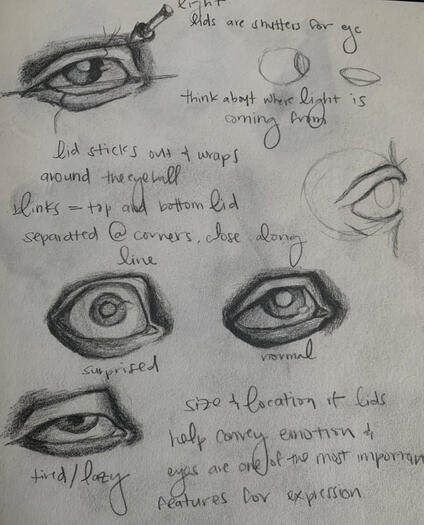 light
lids are shutters for eye
think about where light is
coming from
lid sticks out & wraps
around the eyeball
blinks = top and bottom lid
separated @ corners, close along
line
surprised
normal
tired/lazy
size & location of lids
help convey emotion &
eyes are one of the most important
features for expression